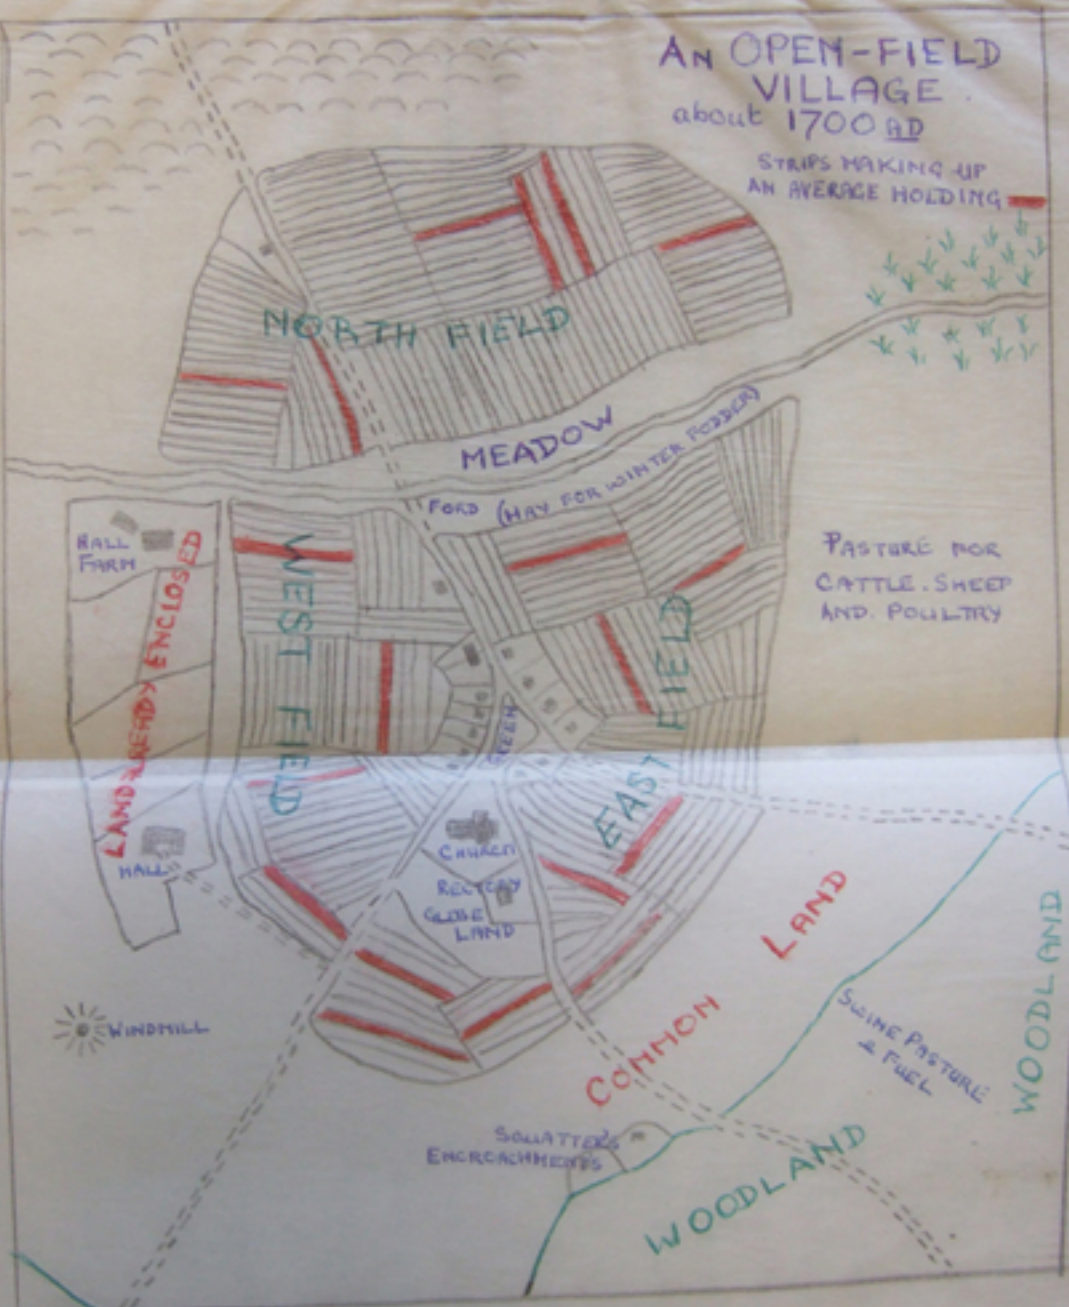 AN OPEN-FIELD
VILLAGE
about 1700 AD
STRIPS MAKING UP
AN AVERAGE HOLDING
NORTH FIELD
MEADOW
FORD (HAY FOR WINTER FODDER)
HALL
FARM
LAND ALREADY ENCLOSED
WEST FIELD
EAST FIELD
PASTURE FOR
CATTLE. SHEEP
AND. POULTRY
GREEN
HALL
CHURCH
RECTORY
GLEBE
LAND
WINDMILL
COMMON LAND
SWINE PASTURE
& FUEL
WOODLAND
SQUATTER'S
ENCROACHMENTS
WOODLAND